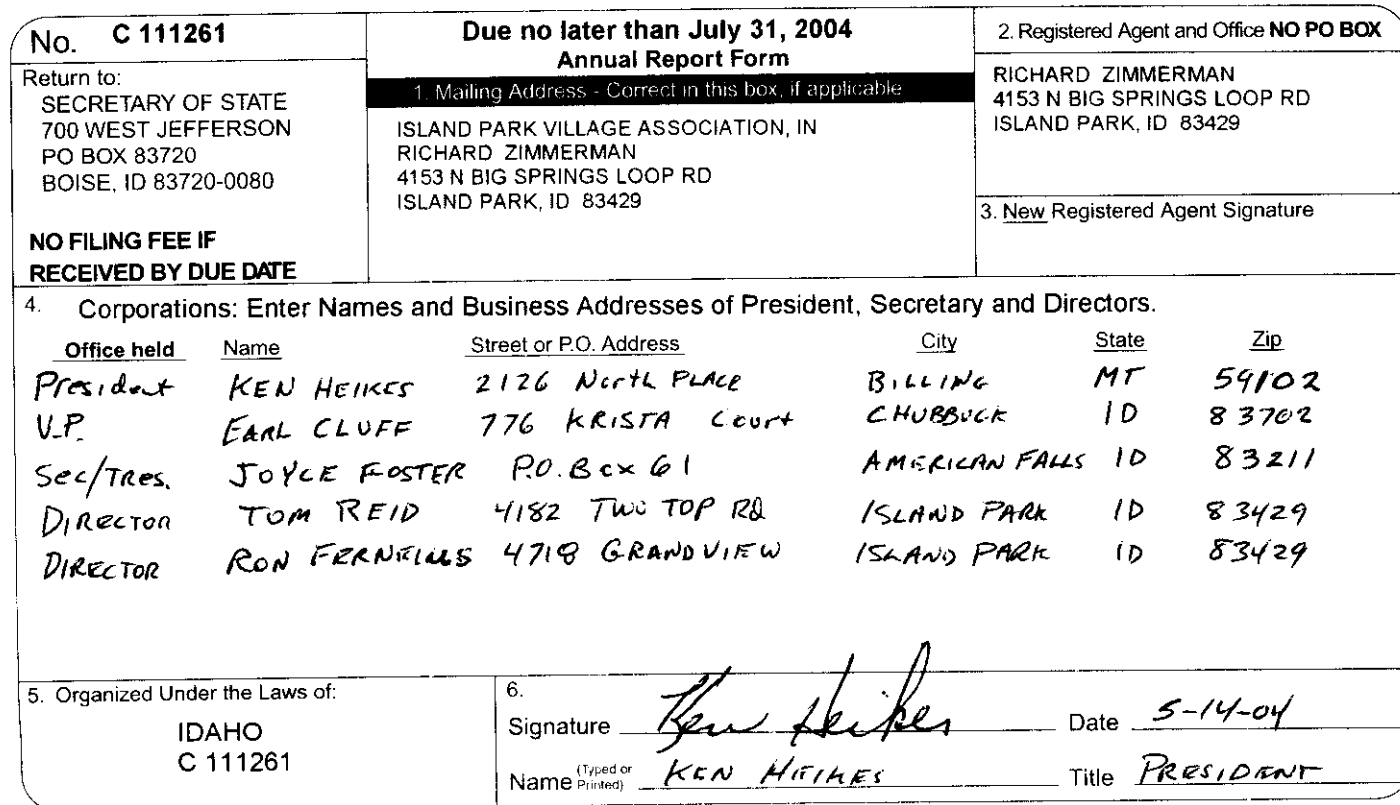 No. C 111261
Return to:
SECRETARY OF STATE
700 WEST JEFFERSON
PO BOX 83720
BOISE, ID 83720-0080
NO FILING FEE IF
RECEIVED BY DUE DATE
Due no later than July 31, 2004
Annual Report Form
1. Mailing Address - Correct in this box, if applicable
ISLAND PARK VILLAGE ASSOCIATION, IN
RICHARD ZIMMERMAN
4153 N BIG SPRINGS LOOP RD
ISLAND PARK, ID 83429
2. Registered Agent and Office NO PO BOX
RICHARD ZIMMERMAN
4153 N BIG SPRINGS LOOP RD
ISLAND PARK, ID 83429
3. New Registered Agent Signature
4. Corporations: Enter Names and Business Addresses of President, Secretary and Directors.
Office held Name Street or P.O. Address City State Zip
President KEN HEIKES 2126 North PLACE BILLING MT 59102
V.P. EARL CLUFF 776 KRISTA Court CHUBBUCK ID 83702
Sec/Tres. JOYCE FOSTER P.O. Box 61 AMERICAN FALLS ID 83211
DIRECTOR TOM REID 4182 TWO TOP RD ISLAND PARK ID 83429
DIRECTOR RON 4718 GRANDVIEW ISLAND PARK ID 83429
5. Organized Under the Laws of:
IDAHO
C 111261
6.
Signature Ken Heikes Date 5-14-04
Name (Typed or Printed) KEN HEIKES Title PRESIDENT